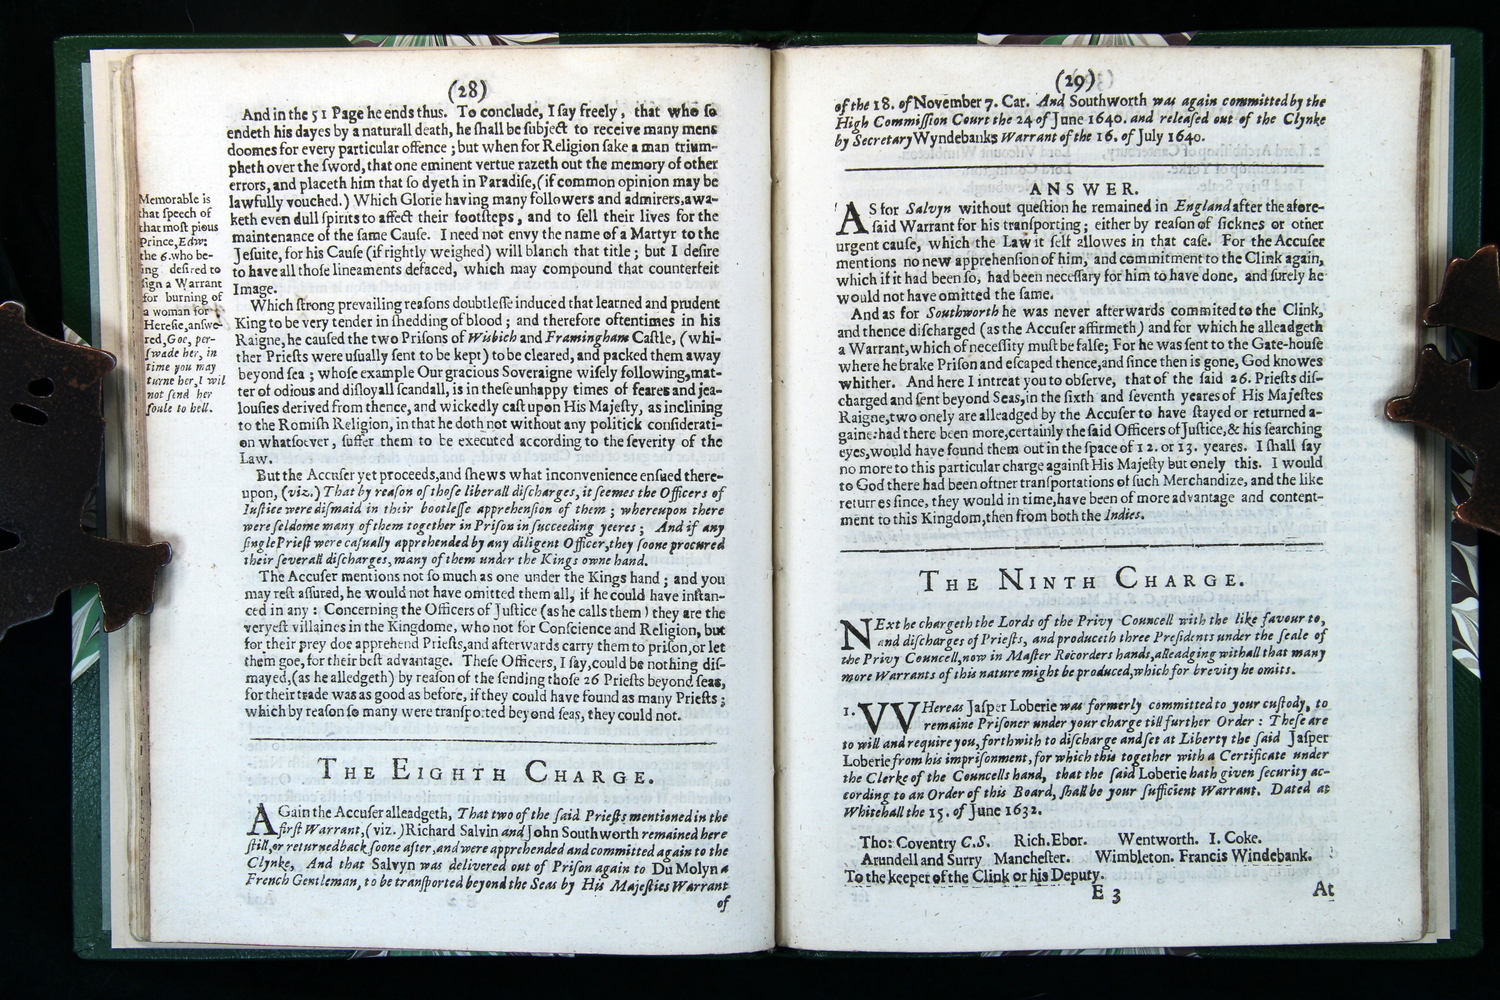 (28)
And in the 51 Page he ends thus. To conclude, I say freely, that who so
endeth his dayes by a naturall death, he shall be subject to receive many mens
doomes for every particular offence; but when for Religion sake a man trium-
pheth over the sword, that one eminent vertue razeth out the memory of other
errors, and placeth him that so dyeth in Paradise, (if common opinion may be
lawfully vouched.) Which Glorie having many followers and admirers, awa-
keth even dull spirits to affect their footsteps, and to sell their lives for the
maintenance of the same Cause. I need not envy the name of a Martyr to the
Jesuite, for his Cause (if rightly weighed) will blanch that title; but I desire
to have all those lineaments defaced, which may compound that counterfeit
Image.
Memorable is
that speech of
that most pious
Prince, Edw:
the 6. who be-
ing desired to
sign a Warrant
for burning of
a woman for
Heresie, answe-
red, Goe, per-
swade her, in
time you may
turne her, I wil
not send her
soule to hell.
Which strong prevailing reasons doubtlesse induced that learned and prudent
King to be very tender in shedding of blood; and therefore oftentimes in his
Raigne, he caused the two Prisons of Wisbich and Framingham Castle, (whi-
ther Priests were usually sent to be kept) to be cleared, and packed them away
beyond sea; whose example Our gracious Soveraigne wisely following, mat-
ter of odious and disloyall scandall, is in these unhappy times of feares and jea-
lousies derived from thence, and wickedly cast upon His Majesty, as inclining
to the Romish Religion, in that he doth not without any politick considerati-
on whatsoever, suffer them to be executed according to the severity of the
Law.
But the Accuser yet proceeds, and shews what inconvenience ensued there-
upon, (viz.) That by reason of those liberall discharges, it seemes the Officers of
Iustice were dismaid in their bootlesse apprehension of them; whereupon there
were seldome many of them together in Prison in succeeding yeeres; And if any
single Priest were casually apprehended by any diligent Officer, they soone procured
their severall discharges, many of them under the Kings owne hand.
The Accuser mentions not so much as one under the Kings hand; and you
may rest assured, he would not have omitted them all, if he could have instan-
ced in any: Concerning the Officers of Justice (as he calls them) they are the
veryest villaines in the Kingdome, who not for Conscience and Religion, but
for their prey doe apprehend Priests, and afterwards carry them to prison, or let
them goe, for their best advantage. These Officers, I say, could be nothing dis-
mayed, (as he alledgeth) by reason of the sending those 26 Priests beyond seas,
for their trade was as good as before, if they could have found as many Priests;
which by reason so many were transported beyond seas, they could not.
THE EIGHTH CHARGE.
AGain the Accuser alleadgeth, That two of the said Priests mentioned in the
first Warrant, (viz.) Richard Salvin and John Southworth remained here
still, or returned back soone after, and were apprehended and committed again to the
Clynke, And that Salvyn was delivered out of Prison again to Du Molyn a
French Gentleman, to be transported beyond the Seas by His Majesties Warrant
of
(29)
of the 18. of November 7. Car. And Southworth was again committed by the
High Commission Court the 24 of June 1640. and released out of the Clynke
by Secretary Wyndebanks Warrant of the 16. of July 1640.
ANSWER.
AS for Salvyn without question he remained in England after the afore-
said Warrant for his transporting; either by reason of sicknes or other
urgent cause, which the Law it self allowes in that case. For the Accuser
mentions no new apprehension of him, and commitment to the Clink again,
which if it had been so, had been necessary for him to have done, and surely he
would not have omitted the same.
And as for Southworth he was never afterwards commited to the Clink,
and thence discharged (as the Accuser affirmeth) and for which he alleadgeth
a Warrant, which of necessity must be false; For he was sent to the Gate-house
where he brake Prison and escaped thence, and since then is gone, God knowes
whither. And here I intreat you to observe, that of the said 26. Priests dis-
charged and sent beyond Seas, in the sixth and seventh yeares of His Majestes
Raigne, two onely are alleadged by the Accuser to have stayed or returned a-
gaine: had there been more, certainly the said Officers of Justice, & his searching
eyes, would have found them out in the space of 12. or 13. yeares. I shall say
no more to this particular charge against His Majesty but onely this. I would
to God there had been oftner transportations of such Merchandize, and the like
returres since, they would in time, have been of more advantage and content-
ment to this Kingdom, then from both the Indies.
THE NINTH CHARGE.
NExt he chargeth the Lords of the Privy Councell with the like favour to,
and discharges of Priests, and produceth three Presidents under the seale of
the Privy Councell, now in Master Recorders hands, alleadging withall that many
more Warrants of this nature might be produced, which for brevity he omits.
1. VVHereas Jasper Loberie was formerly committed to your custody, to
remaine Prisoner under your charge till further Order: These are
to will and require you, forthwith to discharge and set at Liberty the said Jasper
Loberie from his imprisonment, for which this together with a Certificate under
the Clerke of the Councells hand, that the said Loberie hath given security ac-
cording to an Order of this Board, shall be your sufficient Warrant. Dated at
Whitehall the 15. of June 1632.
Tho: Coventry C.S. Rich. Ebor. Wentworth. I. Coke.
Arundell and Surry Manchester. Wimbleton. Francis Windebank.
To the keeper of the Clink or his Deputy.
E 3
At